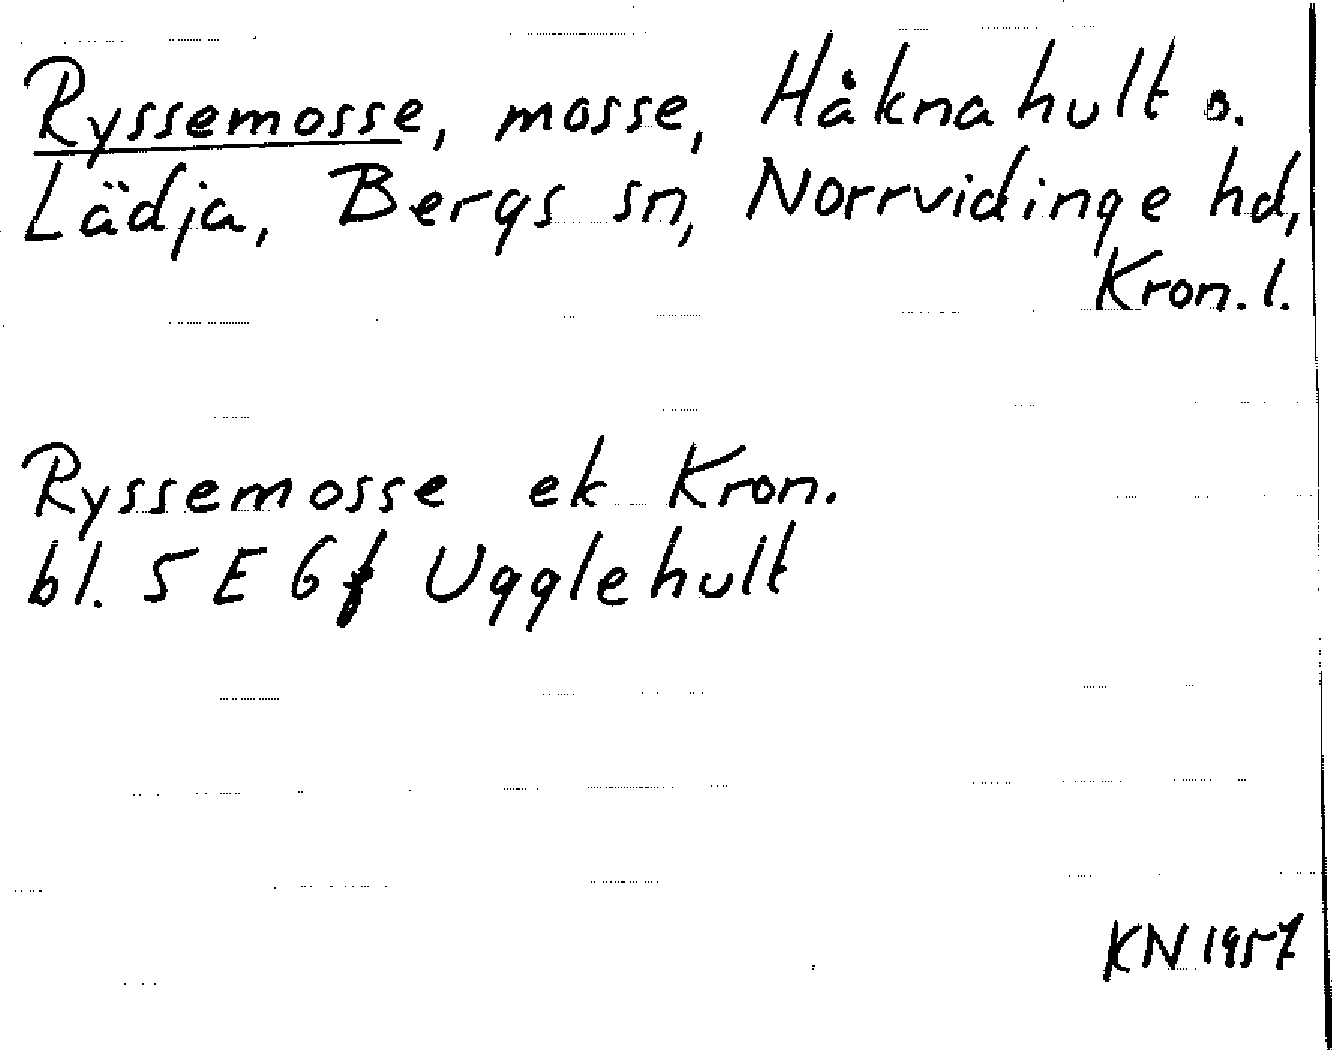 Ryssemosse, mosse, Håknahult o.
Lädja, Bergs sn, Norrvidinge hd,
Kron. l.
Ryssemosse ek Kron.
bl. 5 E 6 f Ugglehult
KN 1957